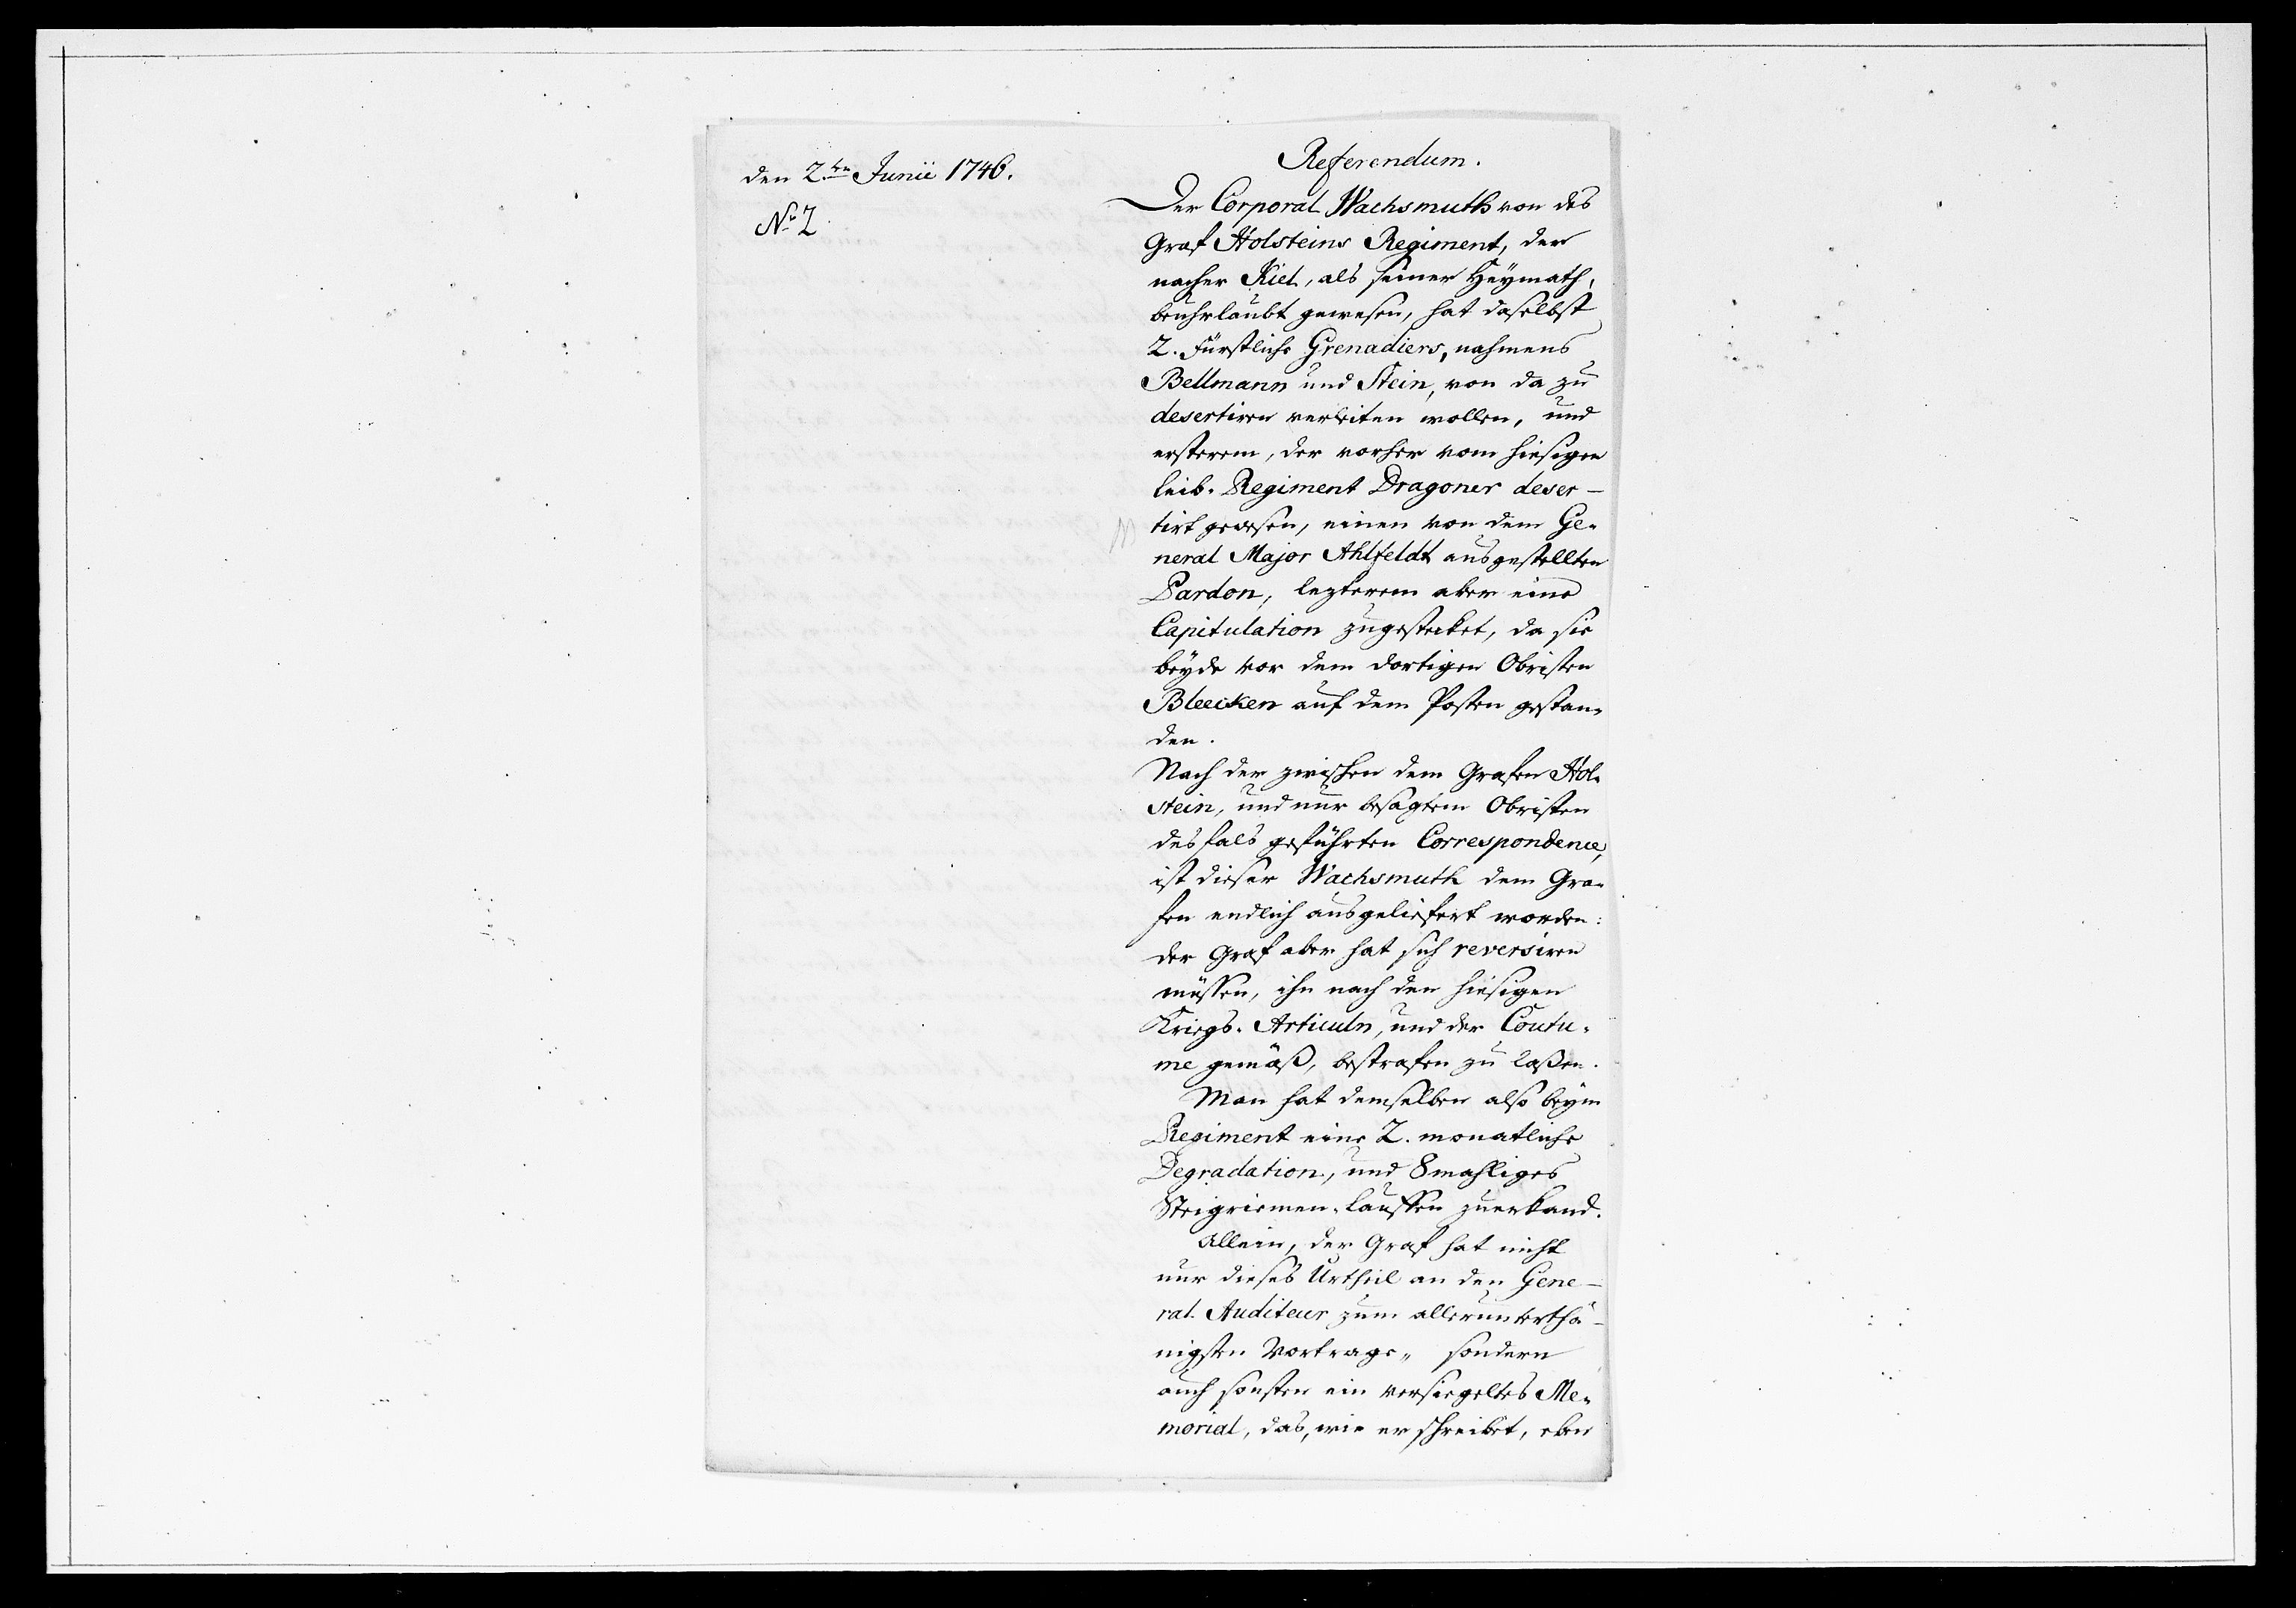 den 2ten Junii 1746.
No 2.
Referendum.
Der Corporal Wachsmuth von des
Graf Holsteins Regiment, der
nacher Kiel, als seiner Heymath,
beuhrlaubt gewesen, hat daselbst
2. Fürstliche Grenadiers, nahmens
Bellmann und Stein, von da zu
desertiren verleiten wollen, und
ersterem, der vorher vom hiesigen
Leib-Regiment Dragoner deser-
tirt gewesen, einen von dem Ge-
neral Major Ahlfeldt ausgestellten
Pardon, lezterem aber eine
Capitulation zugestecket, da sie
beyde vor dem dortigen Obristen
Bleecken auf dem Posten gestan-
den.
Nach der zwischen dem Grafen Hol-
stein, und nur besagtem Obristen
desfals geführten Correspondence,
ist dieser Wachsmuth dem Gra-
fen endlich ausgeliefert worden:
der Graf aber hat sich reversiren
müssen, ihn nach den hiesigen
Kriegs-Articuln, und der Coutu-
me gemäß, bestrafen zu laßen.
Man hat demselben also beym
Regiment eine 2. monatliche
Degradation, und 8mahliges
Steigriemen-lauffen zuerkand.
Allein, der Graf hat nicht
nur dieses Urtheil an den Gene-
ral-Auditeur zum allerunterthä-
nigsten Vortrage, sondern
auch sonsten ein versiegeltes Me-
morial, das, wie er schreibet, eben